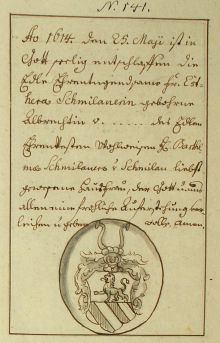 N. 141.
Ao 1614 den 25. Maji ist in
Gott seelig entschlaffen die
Edle Ehrentugendsame Fr. Est-
hera Schmilauerin gebohrne
Albrechtin v. ...... des Edlen
Ehrnvesten Wohlweisen H.
Schmilauers v Schmilau liebst
gewesene Haußfrau, der Gott u uns
allen eine fröhliche Auferstehung ver-
leihen u geben wolle. Amen.